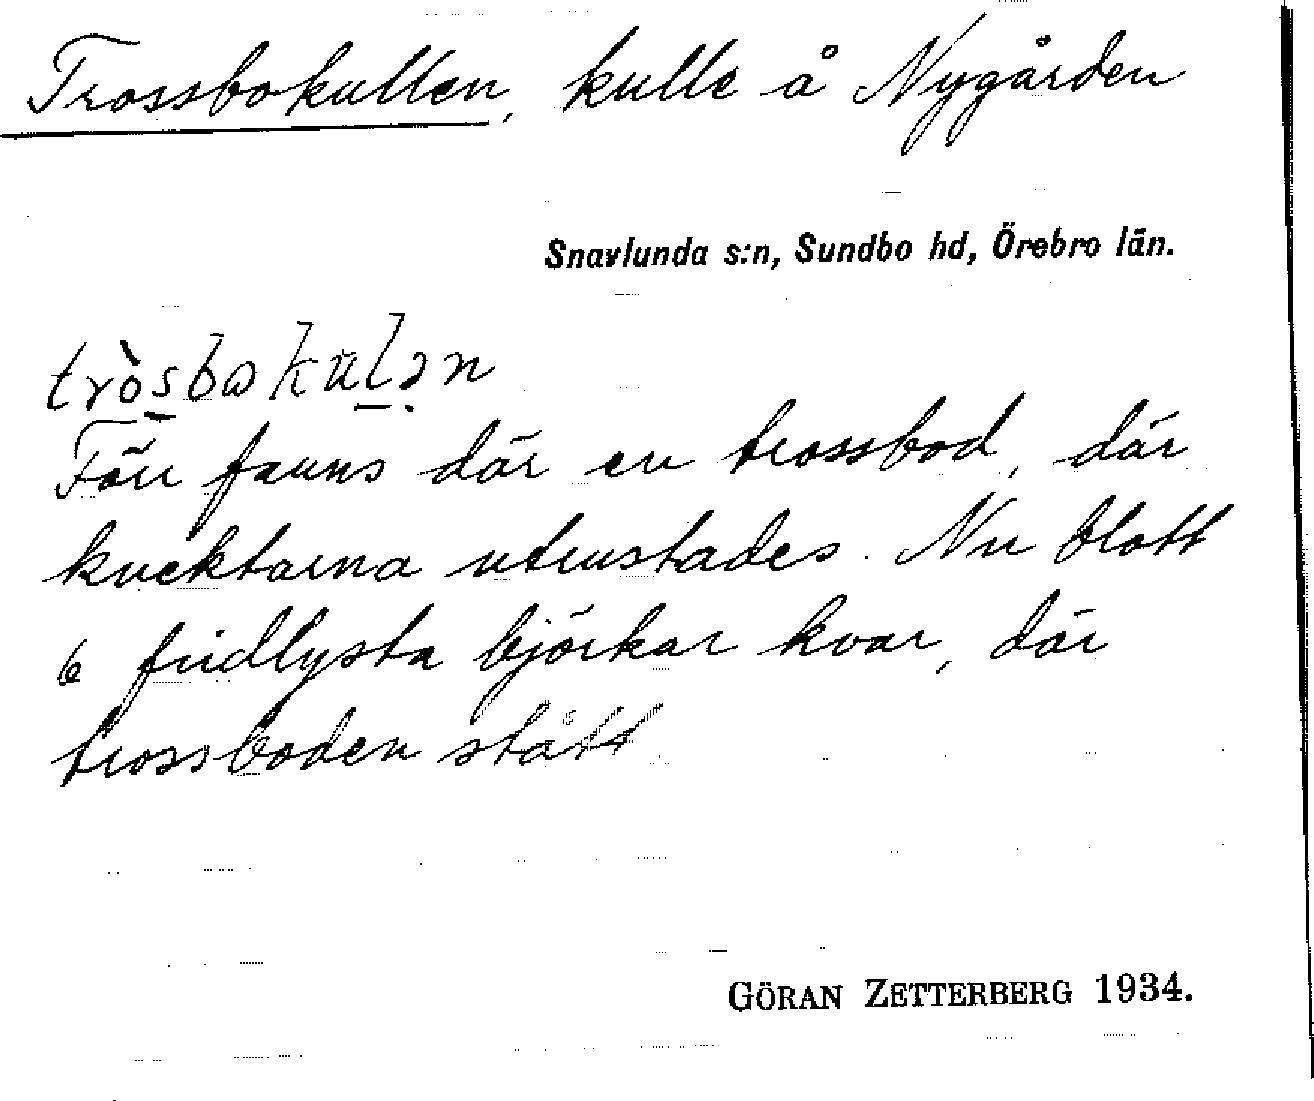 Trossbokullen, kulle å Nygården
Snavlunda s:n, Sundbo hd, Örebro län.
tròsbωkulən
Förr fanns där en trossbod, där
knektarna utrustades. Nu blott
6 fridlysta björkar kvar, där
trossboden stått.
GÖRAN ZETTERBERG 1934.